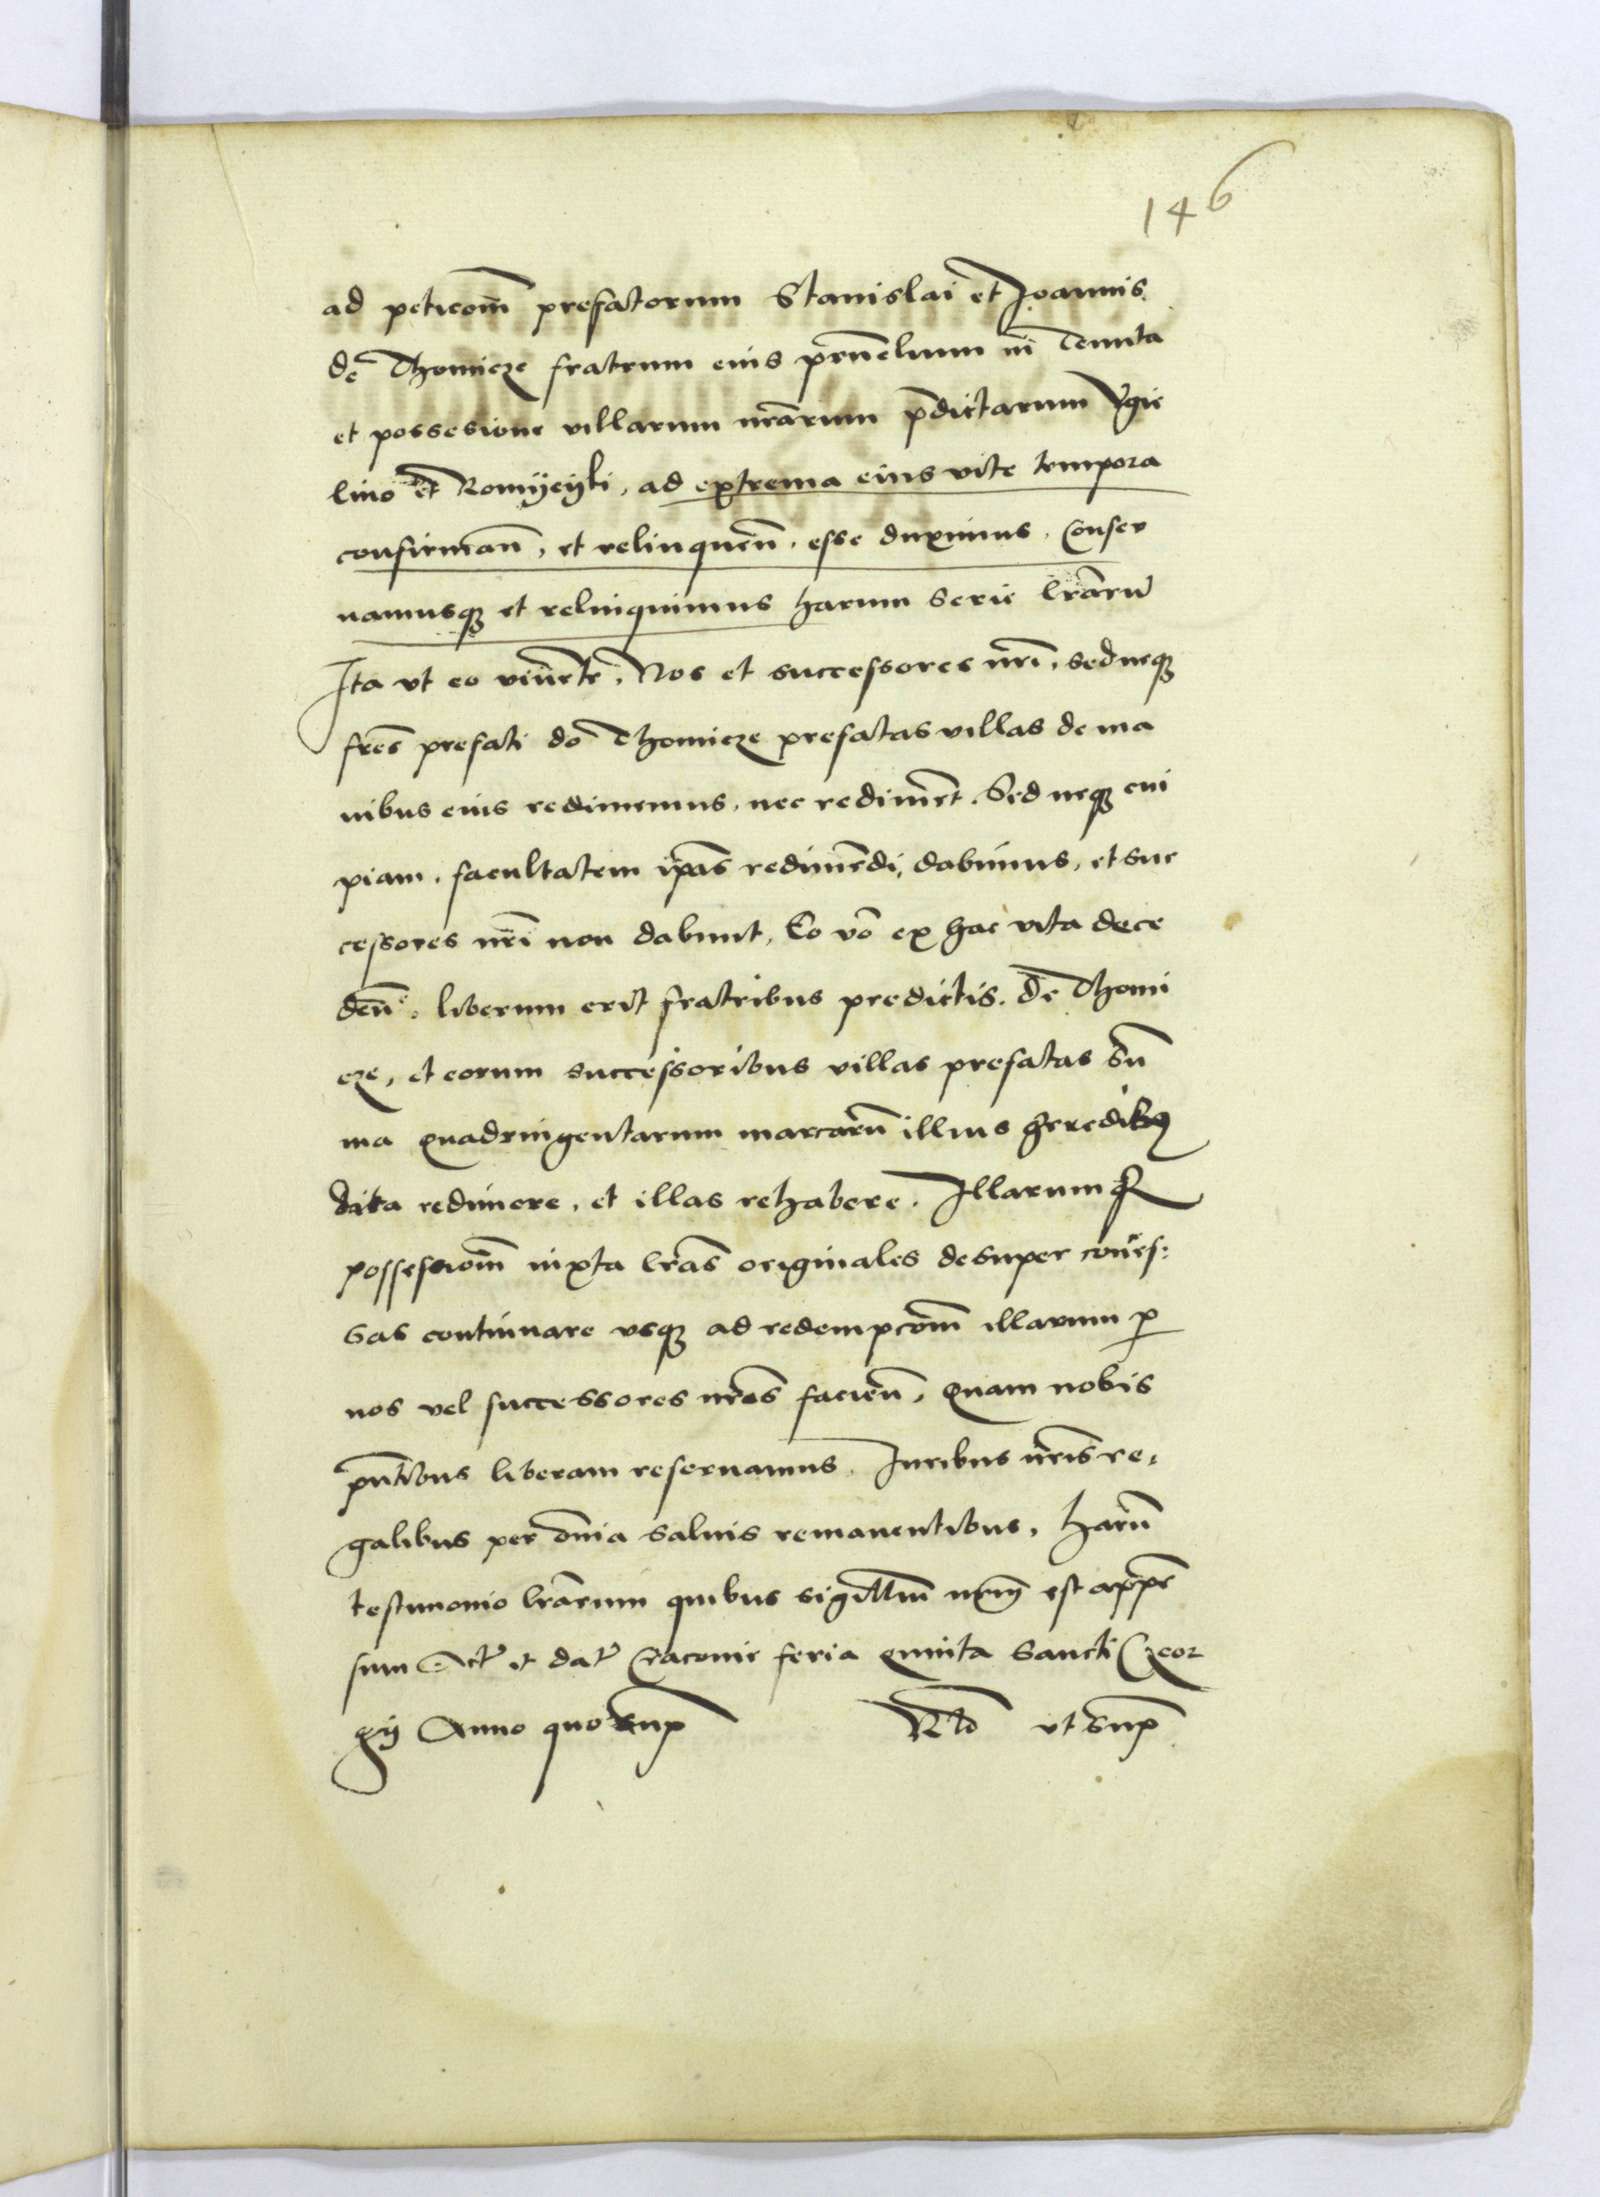 146
ad peticom̄ prefatorum Stanislai et Joannis
de Thomicze fratrum eius pruelium in Tenuta
et possesione villarum nr̄arum p̄dictarum
lino et ad extrema eius vite tempora
confirman̄, et relinquen̄, esse duximus, Conser
uamusq et relinquimus harum serie lr̄arū
Ita vt eo viuente, Nos et successores nr̄i, sed neq
fr̄es prefati de Thomicze prefatas villas de ma
nibus eius redimemus, nec rediment. Sed neq cui
piam, facultatem ip̄as redimendi, dabimus, et suc
cessores nr̄i non dabunt, Eo vō ex hac vita dece
den̄, liberum erit fratribus predictis de Thomi
cze, et eorum successoribus villas prefatas Sū
ma quadringentarum marcarū illius heredibus
data redimere, et illas rehabere. Illarumq
possessiom̄ iuxta lr̄as originales desuper confes:
sas continuare vsq ad redempcom̄ illarum p
nos vel successores nr̄os facien̄, Quam nobis
pn̄tibus liberam reseruamus, Juribus nr̄is re,
galibus per om̄ia saluis remanentibus, harū
testimonio lr̄arum quibus sigillum nr̄m est appen
sum Act̄ et dat̄ Cracouie feria quinta Sancti Geor
gij Anno quo sup̄ Rlo vt sup̄